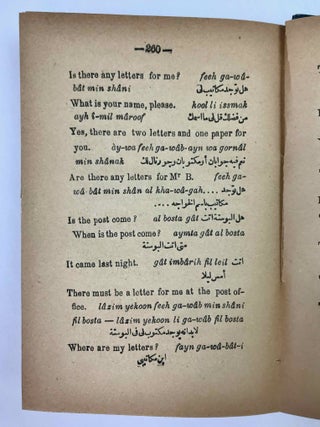 —260—
Is there any letters for me? feeh ga-wâ-
bât min shâni هل توجد مكاتيب لى
What is your name, please. kool li issmak
ayh i-mil mâroof من فضلك قل لى ما اسمك
Yes, there are two letters and one paper for
you. ày-wa feeh ga-wâb-ayn wa gornâl
min shânak نعم فيه جوابان او مكتوبان وجورنال لك
Are there any letters for Mr B. feeh ga-
wâ-bât min shân al kha-wâ-gah.... هل توجد
مكاتيب باسم الخواجه....
Is the post come? al bosta gât هل البوسته اتت
When is the post come? aymta gât al bosta
متى اتت البوستة
It came last night. gât imbârih fil leil اتت
أمس ليلا
There must be a letter for me at the post of-
fice. lâzim yekoon feeh ga-wâb min shâni
fil bosta — lâzim yekoon li ga-wâb fil bosta
لابد انه يوجد مكتوب لى فى البوستة
Where are my letters? fayn ga-wâ-bât-i
اين مكاتيبى